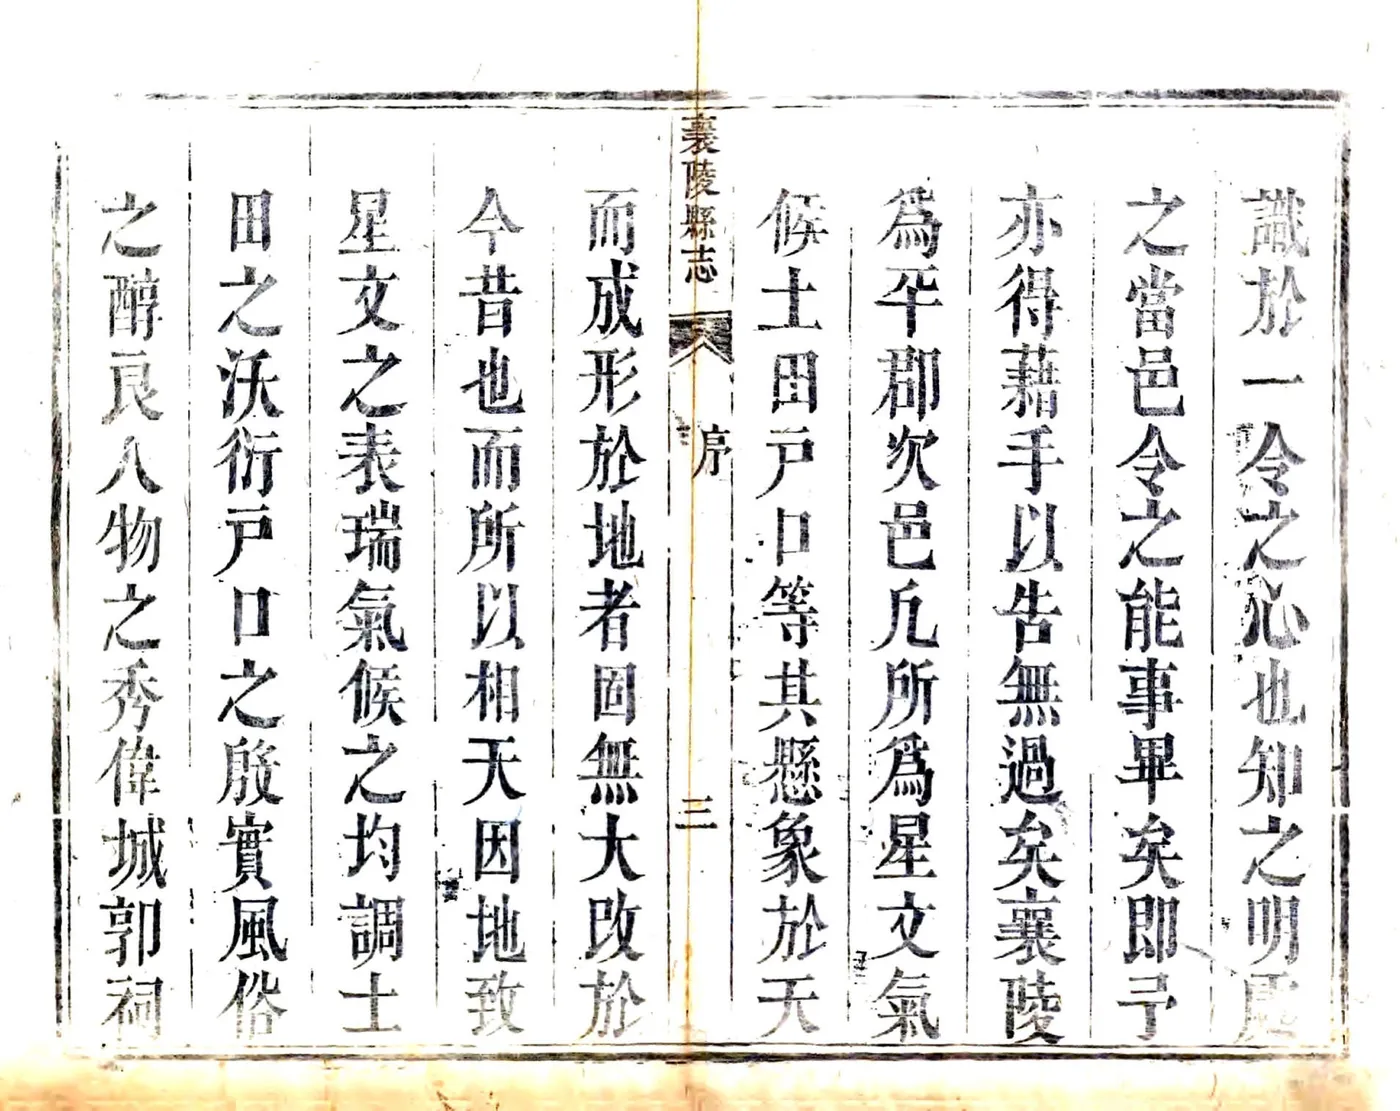 識於一令之心也知之明處
之當邑令之能事畢矣即予
亦得藉手以告無過矣襄陵
爲平郡次邑凡所爲星文氣
候土田戸口等其懸象於天
襄陵縣志
序
三
而成形於地者固無大改於
今昔也而所以相天因地致
星文之表瑞氣候之均調土
田之沃衍戸口之殷實風俗
之醇良人物之秀偉城郭祠